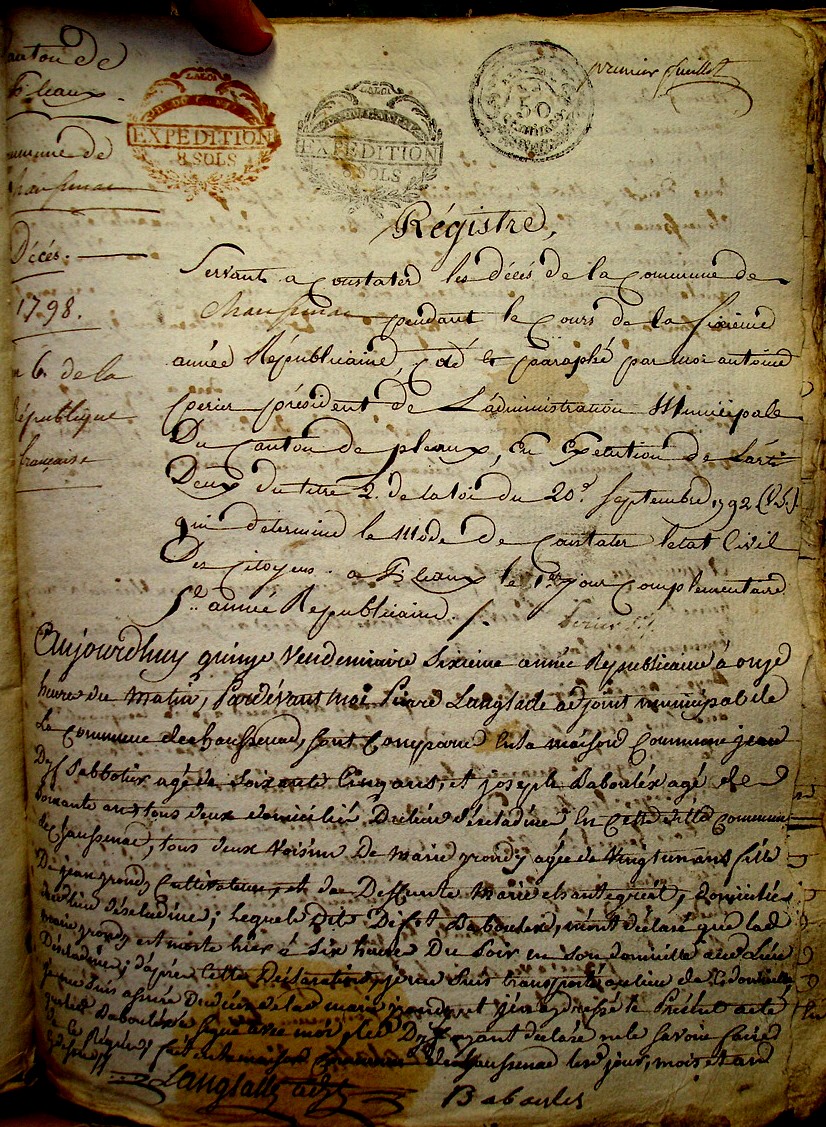 Canton de
Pleaux.
Commune de
Chaussenac
Décés.
1798.
6 de la
République
française
LA LOI
EXPEDITION
8 SOLS
LA LOI
EXPEDITION
8 SOLS
50
CENTIMES
premier feuillet
Régistre,
Servant a Constater les décés de la Commune de
Chaussenac pendant le Cours de la Sixieme
année Républicaine, coté et paraphé par moi antoine
perier président de L'administration Municipale
Du Canton de pleaux, En Execution de L'arte
Deux du titre 2. de la loi du 20e Septembre 1792 (v.s.)
qui determine le Mode de Constater letat Civil
Des Citoyens. a Pleaux le 1er jour Complementaire
5e année Republicaine.
Aujourdhuy quinze Vendemiaire Sixieme année Republicaine à onze
heures du Matin, Pardevant moi Pierre Langlade adjoint municipal de
La Commune de chaussenac, sont Comparus En la maison Commune jean
agé de Soixante Cinq ans, et joseph Baboulex agé de
Soixante ans, tous deux domicilié Du lieu déscladine En Cette Commune
de Chaussenac, tous deux Voisins De Marie grondy agée de Vingt un ans fille
De jean grondy Cultivateur, et de Deffunte Marie domiciliés
au lieu déscladine; lequels dits Baboulex, m'ont déclaré que lad
marie grondy est morte hier à Six heures Du Soir en Son domicille aud lieu
Déscladine; d'apres Cette Déclaration, je me Suis transporté au lieu de Ce domicille,
je me Suis assuré Du déces de lad marie grondy et j'en ay dressé le Présent acte
Baboulex a Signé avec moi, led ayant déclaré ne le Savoir faire
fait en la maison Commune de Chaussenac les jour, mois et an
Langlade adjt Baboulex